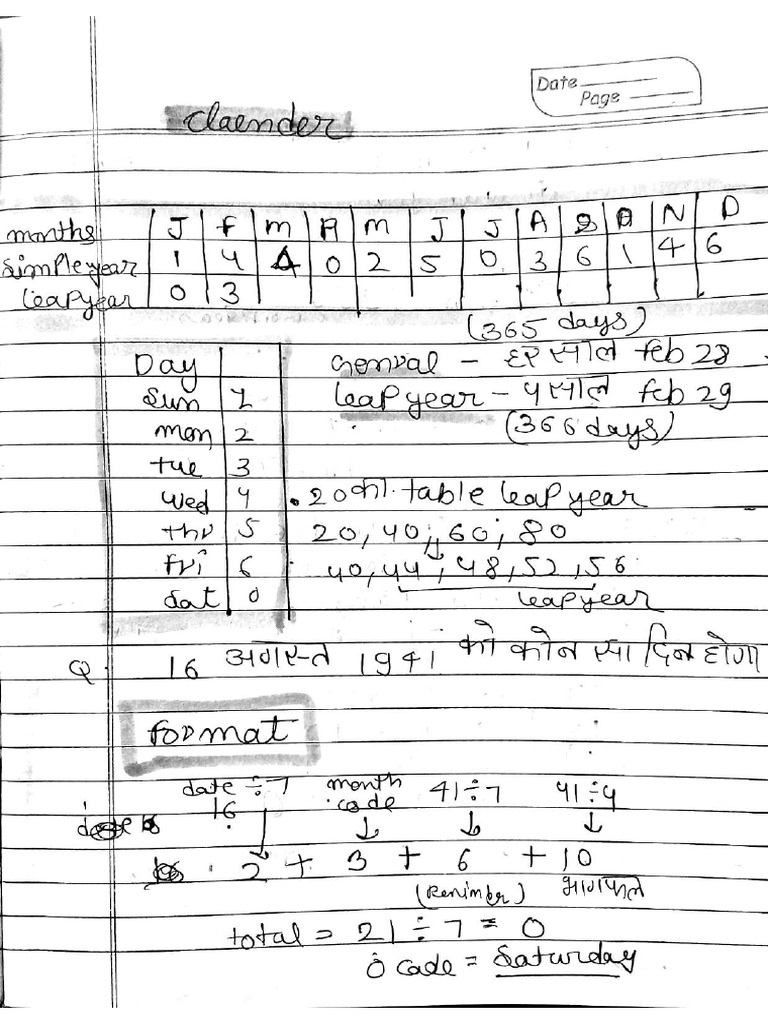 Date
Page
Claender
months J F m A m J J A S O N D
Simple year 1 4 4 0 2 5 0 3 6 1 4 6
leapyear 0 3
(365 days)
Day
Genral - हर साल feb 28
Sun 1
leap year - 4 साल feb 29
mon 2
(366 days)
tue 3
wed 4
• 20 का table leap year
thu 5
20, 40, 60, 80
fri 6
40, 44, 48, 52, 56
sat 0
leapyear
Q 16 अगस्त 1941 को कोन सा दिन होगा
format
date ÷ 7 month 41÷7 41÷4
16 code
2 + 3 + 6 + 10
(Renimber) भागफल
total = 21 ÷ 7 = 0
0 cade = Saturday